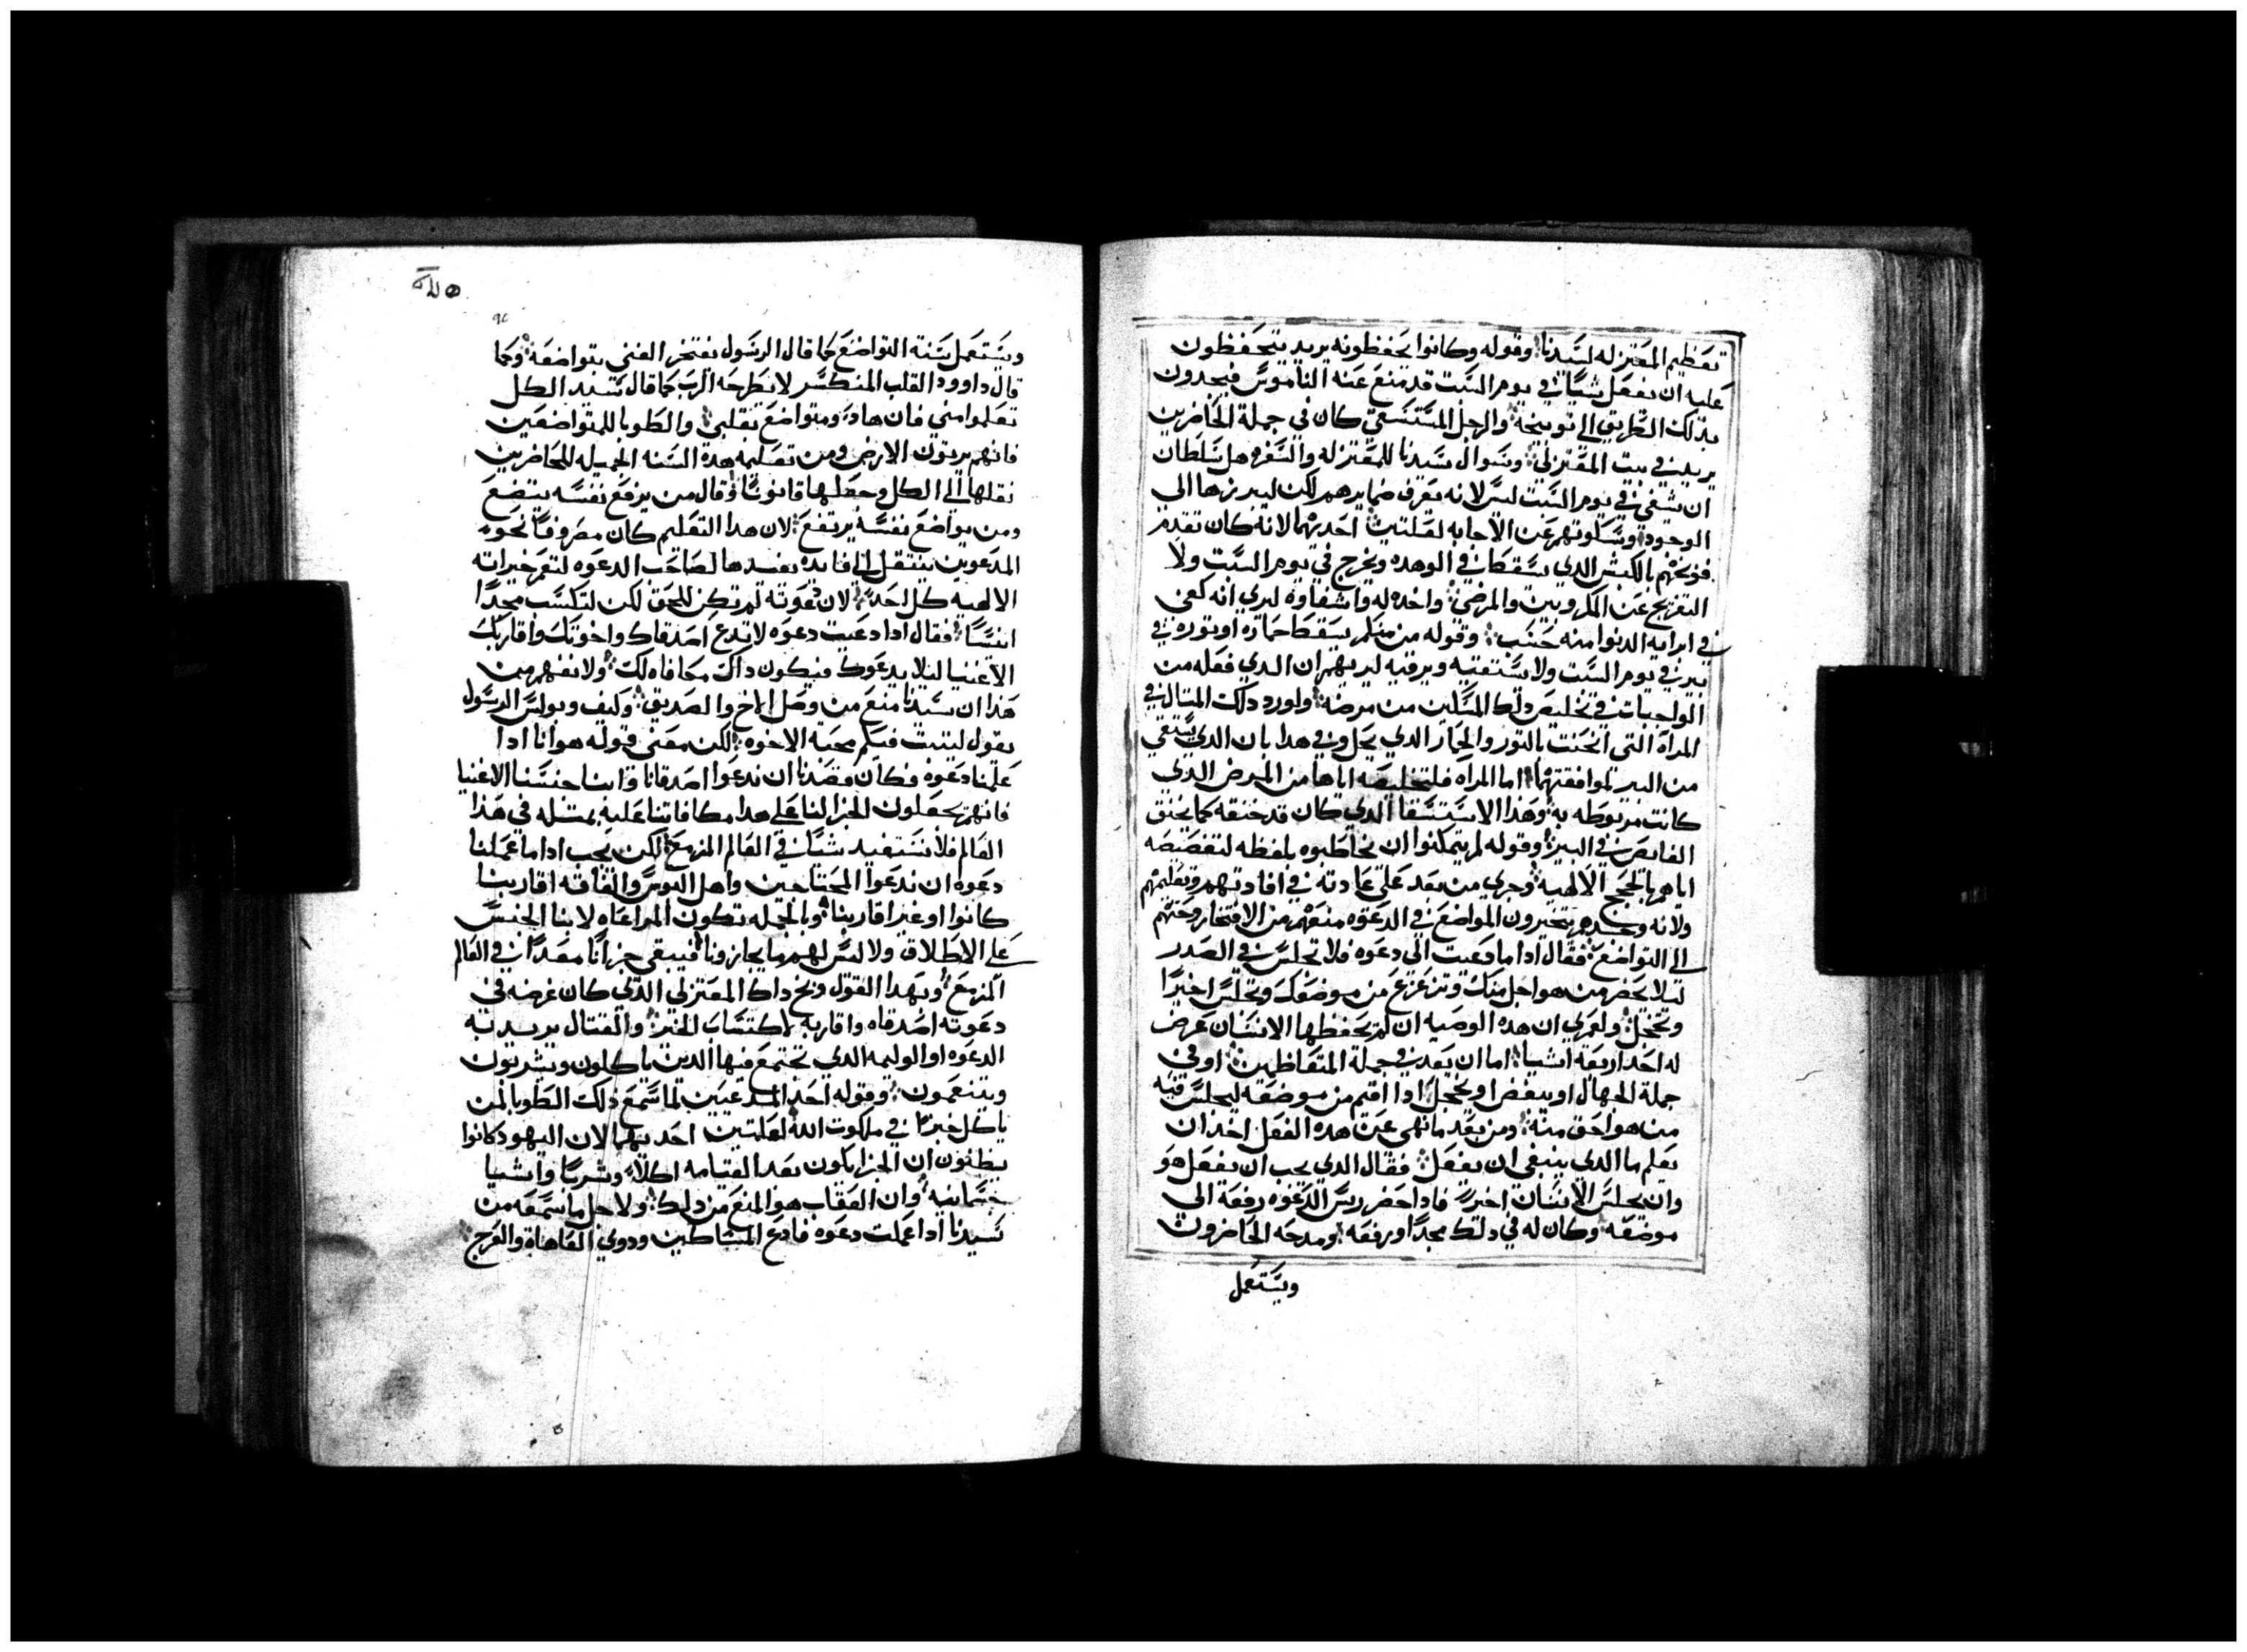 تعظيم المعتزله لسيدنا وقوله وكانوا يحفظونه يريد يتحفظون
عليه ان يفعل شياً في يوم السبت قد منع عنه الناموس فيجدون
بذلك الطريق الي توبيخه والرجل المستسقي كان في جملة الحاضرين
يريد في بيت المعتزلي وسوال سيدنا للمعتزله والسفره هل سلطان
ان يشفي في يوم السبت ليس لانه يعرف ضمايرهم لكن ليبرزها الى
الوجود وسكوتهم عن الاجابه لعلتين احديهما لانه كان تقدم
فوبخهم بالكبش الدي يسقط في الوهده ويخرج في يوم السبت ولا
التفريج عن المكروبين والمرضي واخده له واشفاوه ليري انه كفى
في ابرايه الدنوا منه حسب وقوله من منكم يسقط حماره او توره في
بير في يوم السبت ولا يستقيه ويرقيه ليريهم ان الدي فعله من
الواجبات في تخليص دلك المسكين من مرضه واورد دلك المتال في
المراة التى انحنت بالتور والحمار الدي يحل وفي هدا بان الدي يستقي
من البير لموافقتهما اما المراه فلتخليصه اياها من المرض الدي
كانت مربوطه به وهدا الاستسقا الدي كان قد خنقه كما يخنق
الغايص في البير وقوله لم يتمكنوا ان يخاطبوه بلفظه لتغصيصه
اياهم بالحجج الالهيه وجري من بعد علي عادته في افادتهم وتعليمهم
ولانه وجدهم يتخيرون المواضع في الدعوه منعهم من الافتخار وحتهم
الي التواضع فقال ادا ما دعيت الى دعوه فلا تجلس في الصدر
ليلا يحضر من هو اجل منك وتزعزع من موضعك وتجلس اخيرًا
وتخجل ولعمري ان هده الوصيه ان لم يحفظها الانسان عرض
له احد اربعة اشيا اما ان يعد في جملة المتعاظمين او في
جملة الجهال او يبغض او يخجل ادا اقيم من موضعه ليجلس فيه
من هو احق منه ومن بعد ما نهي عن هده الفعل اخد ان
يعلم ما الدي ينبغي ان يفعل فقال الدي يجب ان يفعل هو
وان يجلس الانسان اخيرً فادا حضر ريس الدعوه رفعه الى
موضعه وكان له في دلك مجدًا ورفعه ومدحه الحاضرون
ويستعمل
٩٢
ويستعمل سنة التواضع كما قال الرسول يفتخر الغني بتواضعه وكما
قال داوود القلب المنكسر لا يطرحه الرب كما قال سيد الكل
تعلموا مني فان هادء ومتواضع بقلبي والطوبا للمتواضعين
فانهم يرتون الارض ومن تعليمه هده السنه الجميله للحاضرين
نقلها الي الكل وجعلها قانونًا وقال من يرفع نفسه يتضع
ومن يواضع نفسه يرتفع لان هدا التعليم كان مصروفًا نحو
المدعوين ينتقل الي فايده يفيدها لصاحب الدعوه لتعم خيراته
الالهيه كل احد لان دعوته لم تكن للحق لكن لتكسب مجدًا
انسيًا فقال ادا دعيت دعوه لا تدع اصدقاك واخوتك واقاربك
الاغنيا ليلا يدعوك فيكون داك مكافاه لك ولا نفهم من
هدا ان سيدنا منع من وصل الاخ والصديق وكيف وبولس الرسول
يقول ليتبت فيكم محبة الاخوه لكن معني قوله هو انا ادا
عملنا دعوه فكان قصدنا ان ندعوا اصدقانا وابنا جنسنا الاغنيا
فانهم يجعلون الجزا لنا علي هدا مكافاتنا عليه بمتله في هدا
العالم فلا نستفيد شياً في العالم المزمع لكن يجب ادا ما عملنا
دعوه ان ندعوا المحتاجين واهل البوس والفاقه اقاربنا
كانوا او غير اقاربنا وبالجمله تكون المراعاه لابنا الجنس
علي الاطلاق ولا ليس لهم ما يجازونا فيبقي جزانا معدًا في العالم
المزمع وبهدا القول وبخ داك المعتزلي الدي كان غرضه في
دعوته اصدقاه واقاربه لاكتساب الخير والقتال يريد به
الدعوه او الوليمه الدي تجتمع فيها الدين ياكلون ويشربون
ويتنعمون وقوله احد المدعيين لما سمع دلك الطوبا لمن
ياكل خبزًا في ملكوت الله لعلتين احديهما لان اليهود كانوا
يظنون ان الجزا يكون بعد القيامه اكلاً وشربًا واشيا
جسمانيه وان العقاب هو المنع من دلك ولاجل ما سمعه من
سيدنا ادا عملت دعوه فادع المساكين ودوي العاهاة والعرج